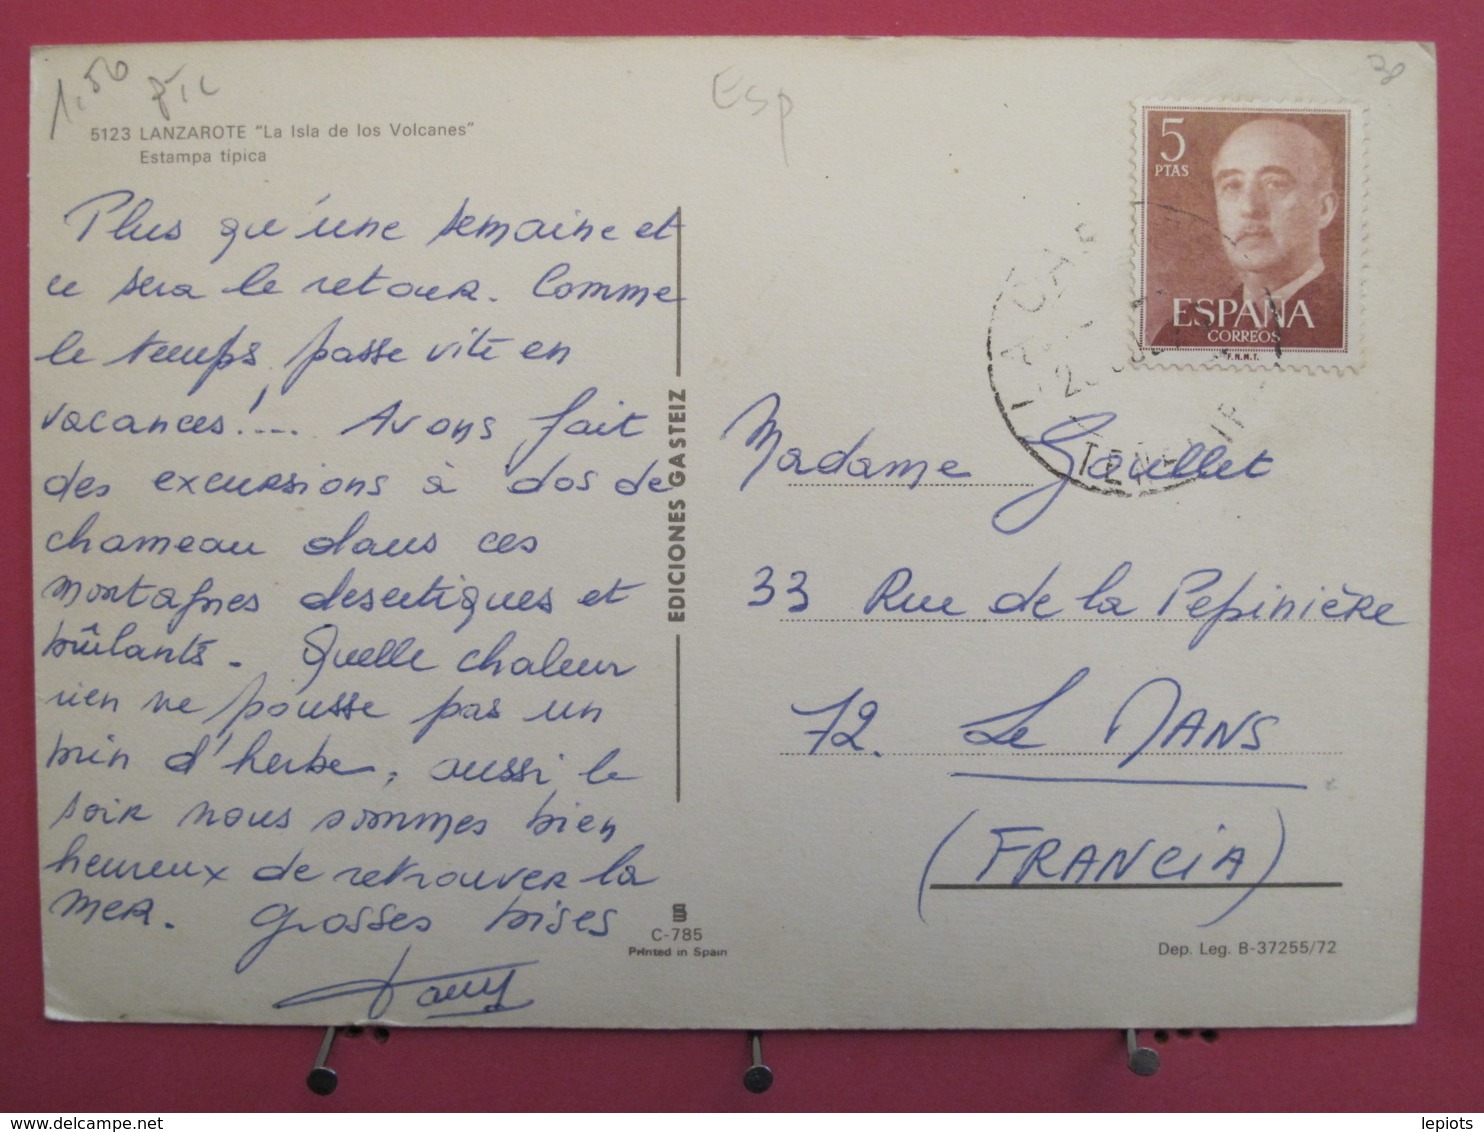 1,50
Esp
5123 LANZAROTE "La Isla de los Volcanes"
Estampa típica
Plus qu'une semaine et
ce sera le retour. Comme
le temps passe vite en
vacances!... Avons fait
des excursions à dos de
chameau dans ces
montagnes desertiques et
brûlants. Quelle chaleur
rien ne pousse pas un
brin d'herbe, aussi le
soir nous sommes bien
heureux de retrouver la
MER. Grosses bises
EDICIONES GASTEIZ
C-785
Printed in Spain
5
PTAS
ESPAÑA
CORREOS
F.N.M.T.
Madame Goullet
33 Rue de la Pepinière
72. Le MANS
(FRANCIA)
Dep. Leg. B-37255/72
delcampe.net
lepiots